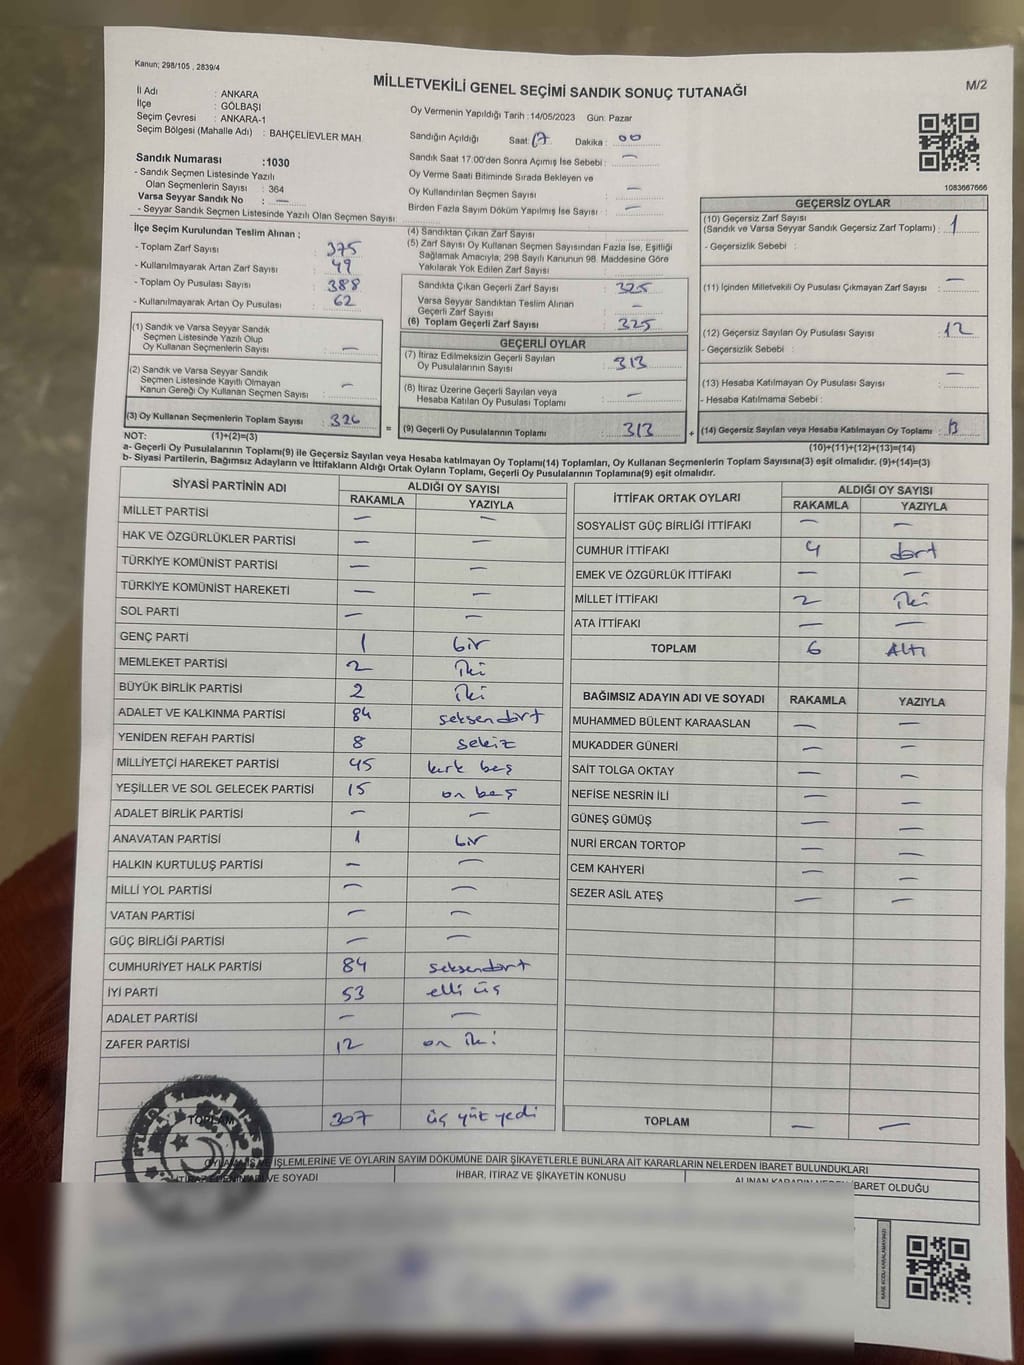 Kanun; 298/105 , 2839/4
MİLLETVEKİLİ GENEL SEÇİMİ SANDIK SONUÇ TUTANAĞI
M/2
İl Adı : ANKARA
İlçe : GÖLBAŞI
Seçim Çevresi : ANKARA-1
Seçim Bölgesi (Mahalle Adı) : BAHÇELİEVLER MAH
Sandık Numarası :1030
- Sandık Seçmen Listesinde Yazılı
Olan Seçmenlerin Sayısı : 364
Varsa Seyyar Sandık No : —
- Seyyar Sandık Seçmen Listesinde Yazılı Olan Seçmen Sayısı :
Oy Vermenin Yapıldığı Tarih :14/05/2023 Gün: Pazar
Sandığın Açıldığı Saat: 17 Dakika : 00
Sandık Saat 17:00'den Sonra Açımış İse Sebebi : —
Oy Verme Saati Bitiminde Sırada Bekleyen ve
Oy Kullandırılan Seçmen Sayısı —
Birden Fazla Sayım Döküm Yapılmış İse Sayısı : —
1083667666
İlçe Seçim Kurulundan Teslim Alınan ;
- Toplam Zarf Sayısı : 375
- Kullanılmayarak Artan Zarf Sayısı : 49
- Toplam Oy Pusulası Sayısı : 388
- Kullanılmayarak Artan Oy Pusulası : 62
(1) Sandık ve Varsa Seyyar Sandık
Seçmen Listesinde Yazılı Olup
Oy Kullanan Seçmenlerin Sayısı : —
(2) Sandık ve Varsa Seyyar Sandık
Seçmen Listesinde Kayıtlı Olmayan
Kanun Gereği Oy Kullanan Seçmen Sayısı : —
(3) Oy Kullanan Seçmenlerin Toplam Sayısı : 326
(4) Sandıktan Çıkan Zarf Sayısı :
(5) Zarf Sayısı Oy Kullanan Seçmen Sayısından Fazla İse, Eşitliği
Sağlamak Amacıyla; 298 Sayılı Kanunun 98. Maddesine Göre
Yakılarak Yok Edilen Zarf Sayısı :
Sandıkta Çıkan Geçerli Zarf Sayısı : 325
Varsa Seyyar Sandıktan Teslim Alınan
Geçerli Zarf Sayısı : —
(6) Toplam Geçerli Zarf Sayısı : 325
GEÇERLİ OYLAR
(7) İtiraz Edilmeksizin Geçerli Sayılan
Oy Pusulalarının Sayısı : 313
(8) İtiraz Üzerine Geçerli Sayılan veya
Hesaba Katılan Oy Pusulası Toplamı : —
= (9) Geçerli Oy Pusulalarının Toplamı : 313 +
GEÇERSİZ OYLAR
(10) Geçersiz Zarf Sayısı
(Sandık ve Varsa Seyyar Sandık Geçersiz Zarf Toplamı) : 1
- Geçersizlik Sebebi :
(11) İçinden Milletvekili Oy Pusulası Çıkmayan Zarf Sayısı : —
(12) Geçersiz Sayılan Oy Pusulası Sayısı : 12
- Geçersizlik Sebebi :
(13) Hesaba Katılmayan Oy Pusulası Sayısı : —
- Hesaba Katılmama Sebebi :
(14) Geçersiz Sayılan veya Hesaba Katılmayan Oy Toplamı : 13
NOT: (1)+(2)=(3) (10)+(11)+(12)+(13)=(14)
a- Geçerli Oy Pusulalarının Toplamı(9) ile Geçersiz Sayılan veya Hesaba katılmayan Oy Toplamı(14) Toplamları, Oy Kullanan Seçmenlerin Toplam Sayısına(3) eşit olmalıdır. (9)+(14)=(3)
b- Siyasi Partilerin, Bağımsız Adayların ve İttifakların Aldığı Ortak Oyların Toplamı, Geçerli Oy Pusulalarının Toplamına(9) eşit olmalıdır.
SİYASİ PARTİNİN ADI ALDIĞI OY SAYISI
RAKAMLA YAZIYLA
MİLLET PARTİSİ — —
HAK VE ÖZGÜRLÜKLER PARTİSİ — —
TÜRKİYE KOMÜNİST PARTİSİ — —
TÜRKİYE KOMÜNİST HAREKETİ — —
SOL PARTİ — —
GENÇ PARTİ 1 bir
MEMLEKET PARTİSİ 2 iki
BÜYÜK BİRLİK PARTİSİ 2 iki
ADALET VE KALKINMA PARTİSİ 84 seksendört
YENİDEN REFAH PARTİSİ 8 sekiz
MİLLİYETÇİ HAREKET PARTİSİ 45 kırk beş
YEŞİLLER VE SOL GELECEK PARTİSİ 15 on beş
ADALET BİRLİK PARTİSİ — —
ANAVATAN PARTİSİ 1 bir
HALKIN KURTULUŞ PARTİSİ — —
MİLLİ YOL PARTİSİ — —
VATAN PARTİSİ — —
GÜÇ BİRLİĞİ PARTİSİ — —
CUMHURİYET HALK PARTİSİ 84 seksendört
İYİ PARTİ 53 elli üç
ADALET PARTİSİ — —
ZAFER PARTİSİ 12 on iki
TOPLAM 307 üç yüz yedi
İTTİFAK ORTAK OYLARI ALDIĞI OY SAYISI
RAKAMLA YAZIYLA
SOSYALİST GÜÇ BİRLİĞİ İTTİFAKI — —
CUMHUR İTTİFAKI 4 dört
EMEK VE ÖZGÜRLÜK İTTİFAKI — —
MİLLET İTTİFAKI 2 iki
ATA İTTİFAKI — —
TOPLAM 6 Altı
BAĞIMSIZ ADAYIN ADI VE SOYADI RAKAMLA YAZIYLA
MUHAMMED BÜLENT KARAASLAN — —
MUKADDER GÜNERİ — —
SAİT TOLGA OKTAY — —
NEFİSE NESRİN İLİ — —
GÜNEŞ GÜMÜŞ — —
NURİ ERCAN TORTOP — —
CEM KAHYERİ — —
SEZER ASİL ATEŞ — —
TOPLAM — —
İŞLEMLERİNE VE OYLARIN SAYIM DÖKÜMÜNE DAİR ŞİKAYETLERLE BUNLARA AİT KARARLARIN NELERDEN İBARET BULUNDUKLARI
VE SOYADI İHBAR, İTİRAZ VE ŞİKAYETİN KONUSU ALINAN KARARIN NEDEN İBARET OLDUĞU